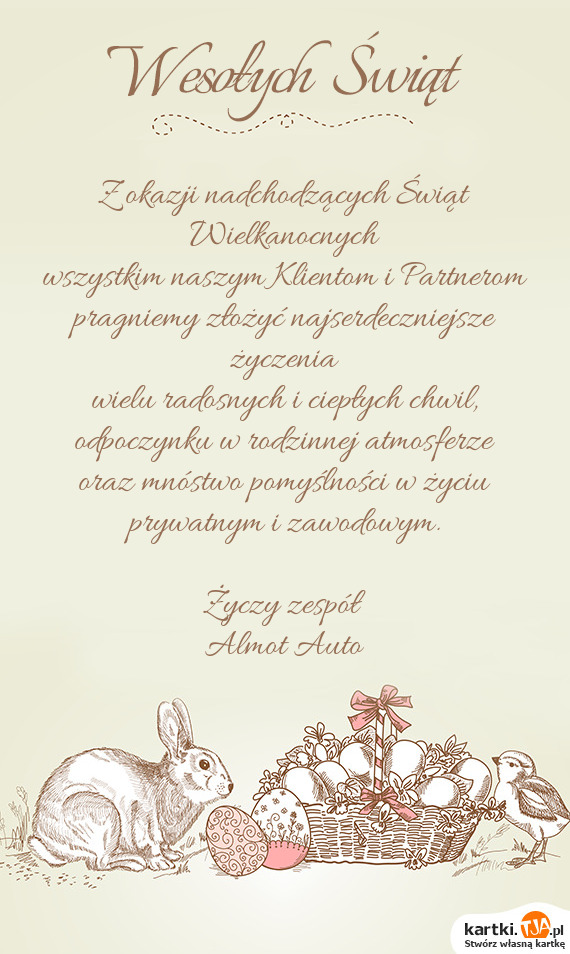 Wesołych Świąt
Z okazji nadchodzących Świąt
Wielkanocnych
wszystkim naszym Klientom i Partnerom
pragniemy złożyć najserdeczniejsze
życzenia
wielu radosnych i ciepłych chwil,
odpoczynku w rodzinnej atmosferze
oraz mnóstwo pomyślności w życiu
prywatnym i zawodowym.
Życzy zespół
Almot Auto
kartki.TJA.pl
Stwórz własną kartkę